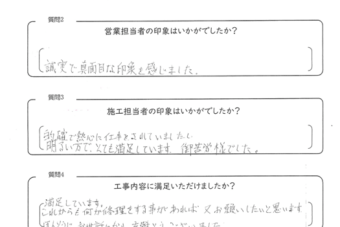 質問2
営業担当者の印象はいかがでしたか?
誠実で真面目な印象を感じました。
質問3
施工担当者の印象はいかがでしたか?
的確で熱心に仕事をされていましたし
明るい方で、とても満足しています 御苦労様でした。
質問4
工事内容に満足いただけましたか?
満足しています。
これからも何か修理をする事があれば 又お願いしたいと思います